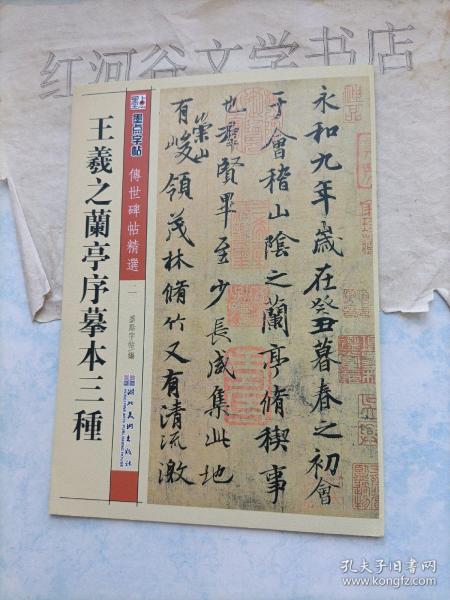 红河谷文学书店
墨点字帖
傳世碑帖精選
二
墨點字帖 編
湖北美術出版社
王羲之蘭亭序摹本三種
永和九年歲在癸丑暮春之初會
于會稽山陰之蘭亭脩稧事
也羣賢畢至少長咸集此地
有崇山峻領茂林脩竹又有清流激
孔夫子旧书网
www.kongfz.com